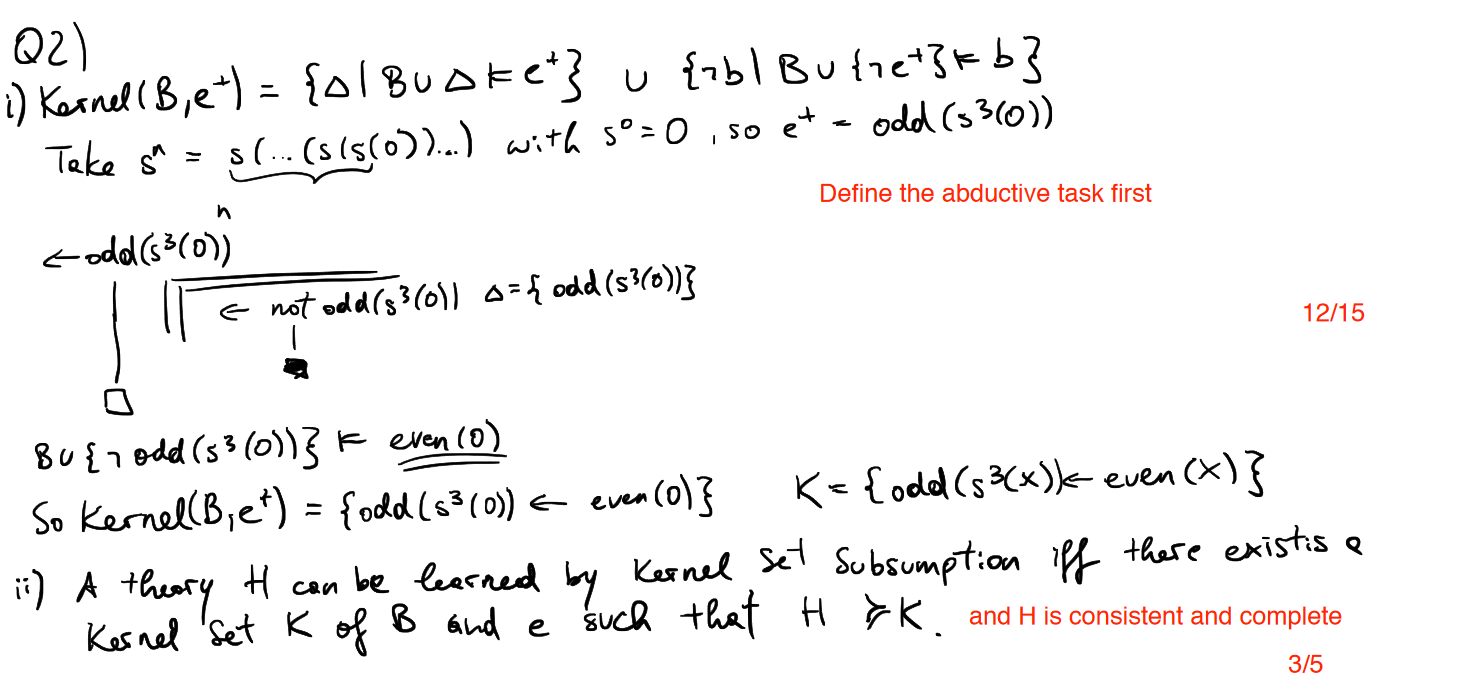 Q2)
i) Kernel(B,e⁺) = {Δ | B ∪ Δ ⊨ e⁺} ∪ {¬b | B ∪ {¬e⁺} ⊨ b}
Take sⁿ = s(...(s(s(0))...) with s⁰ = 0, so e⁺ = odd(s³(0))
n
Define the abductive task first
← odd(s³(0))
← not odd(s³(0)) Δ = { odd(s³(0))}
12/15
B ∪ {¬ odd(s³(0))} ⊨ even(0)
So Kernel(B,e⁺) = {odd(s³(0)) ← even(0)} K = {odd(s³(x)) ← even(x)}
ii) A theory H can be learned by Kernel Set Subsumption iff there existis a
Kernel Set K of B and e such that H ≽ K.
and H is consistent and complete
3/5